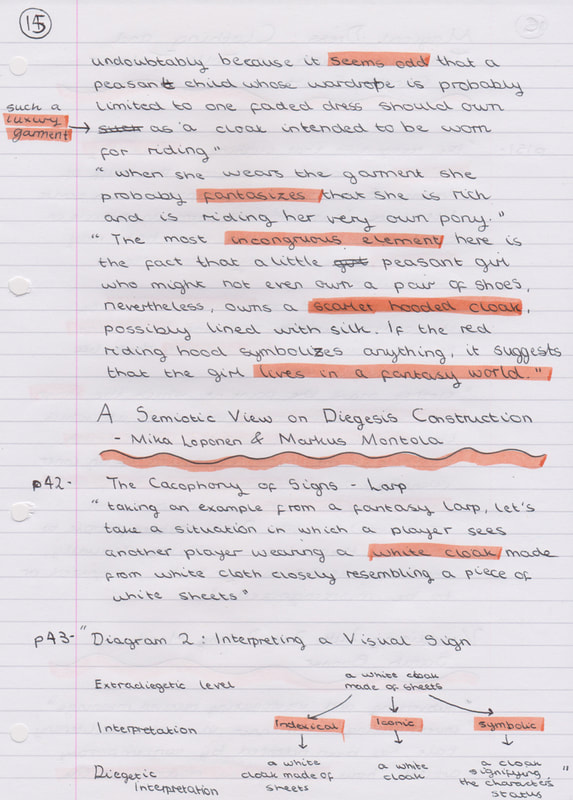 15
undoubtably because it seems odd that a
peasant child whose wardrope is probably
limited to one faded dress should own
such a
luxury
garment
such as a cloak intended to be worn
for riding"
" when she wears the garment she
probably fantasizes that she is rich
and is riding her very own pony."
" The most incongruous element here is
the fact that a little girl peasant girl
who might not even own a pair of shoes,
nevertheless, owns a scarlet hooded cloak,
possibly lined with silk. If the red
riding hood symbolizes anything, it suggests
that the girl lives in a fantasy world."
A Semiotic View on Diegesis Construction
- Mika Loponen & Markus Montola
p42- The Cacophony of Signs - Larp
" taking an example from a fantasy larp, let's
take a situation in which a player sees
another player wearing a white cloak made
from white cloth closely resembling a piece of
white sheets"
p43- "Diagram 2: Interpreting a Visual Sign
Extradiegetic level a white cloak
made of sheets
Interpretation Indexical Iconic Symbolic
Diegetic
Interpretation
a white
cloak made of
sheets
a white
cloak
a cloak
signifying
the characters
status "